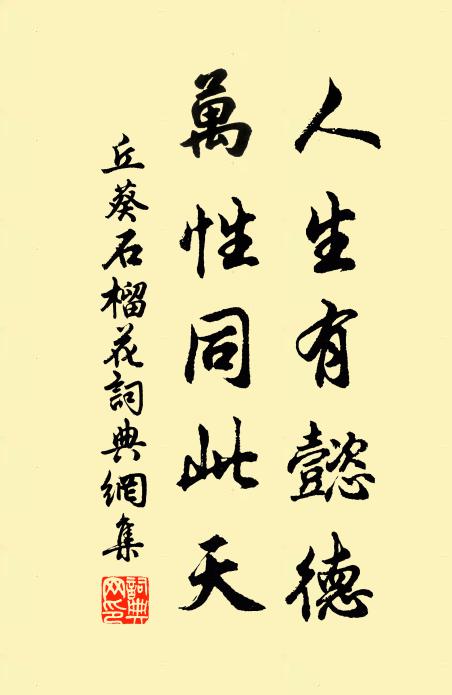 人生有懿德
萬性同此天
丘葵石榴花詞典網集
詞典網印